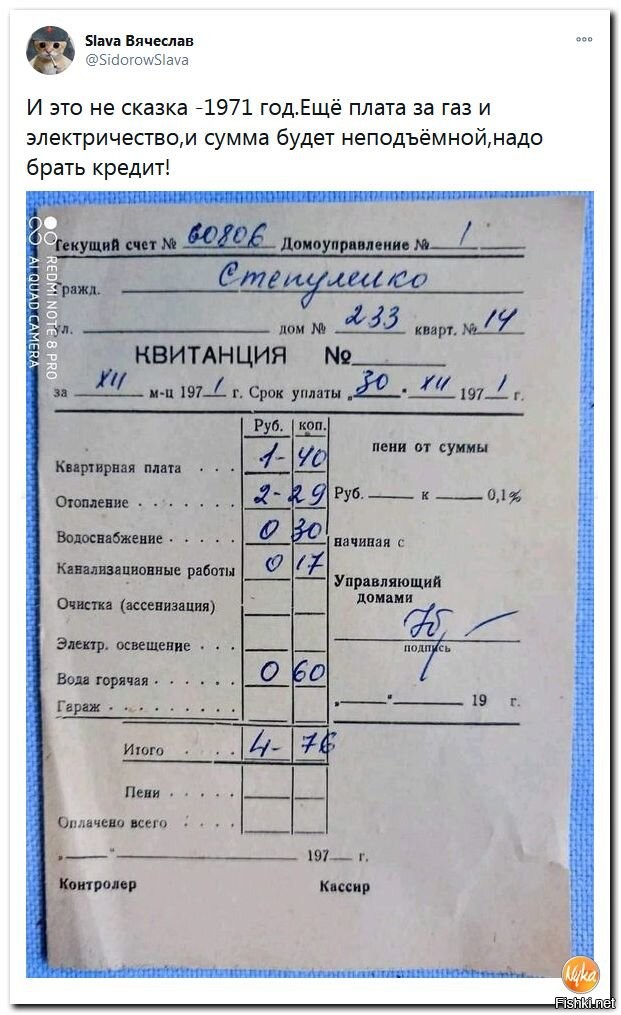 Slava Вячеслав
@SidorowSlava
И это не сказка -1971 год.Ещё плата за газ и
электричество,и сумма будет неподъёмной,надо
брать кредит!
REDMI NOTE 8 PRO
AI QUAD CAMERA
Текущий счет № 60806 Домоуправление № 1
Гражд. Степуленко
ул. дом № 233 кварт. № 14
КВИТАНЦИЯ №
за XII м-ц 1971 г. Срок уплаты „30 " XII 1971 г.
Руб. коп.
Квартирная плата . . . 1- 40
пени от суммы
Отопление . . . . . . . 2- 29
Руб. к 0,1%
Водоснабжение . . . . 0 30
начиная с
Канализационные работы 0 17
Управляющий
домами
Очистка (ассенизация)
подпись
Электр. освещение . . .
Вода горячая . . . . . 0 60
„ " 19 г.
Гараж . . . . . . . . .
Итого . . . . 4- 76
Пени . . . . .
Оплачено всего . . . .
„ " 197 г.
Контролер Кассир
Nyka
Fishki.net